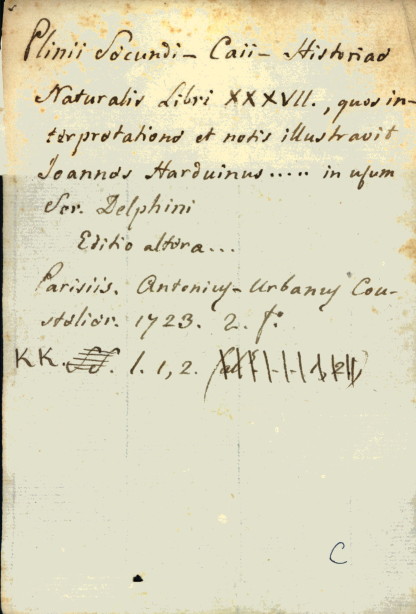 Plinii Secundi - Caii - Historiae
Naturalis Libri XXXVII., quos in-
terpretatione et notis illustravit
Joannes Harduinus ..... in usum
Ser. Delphini
Editio altera...
Parisiis. Antonius - Urbanus Cou-
stelier. 1723. 2. fo.
KK. 1. 1, 2.
C